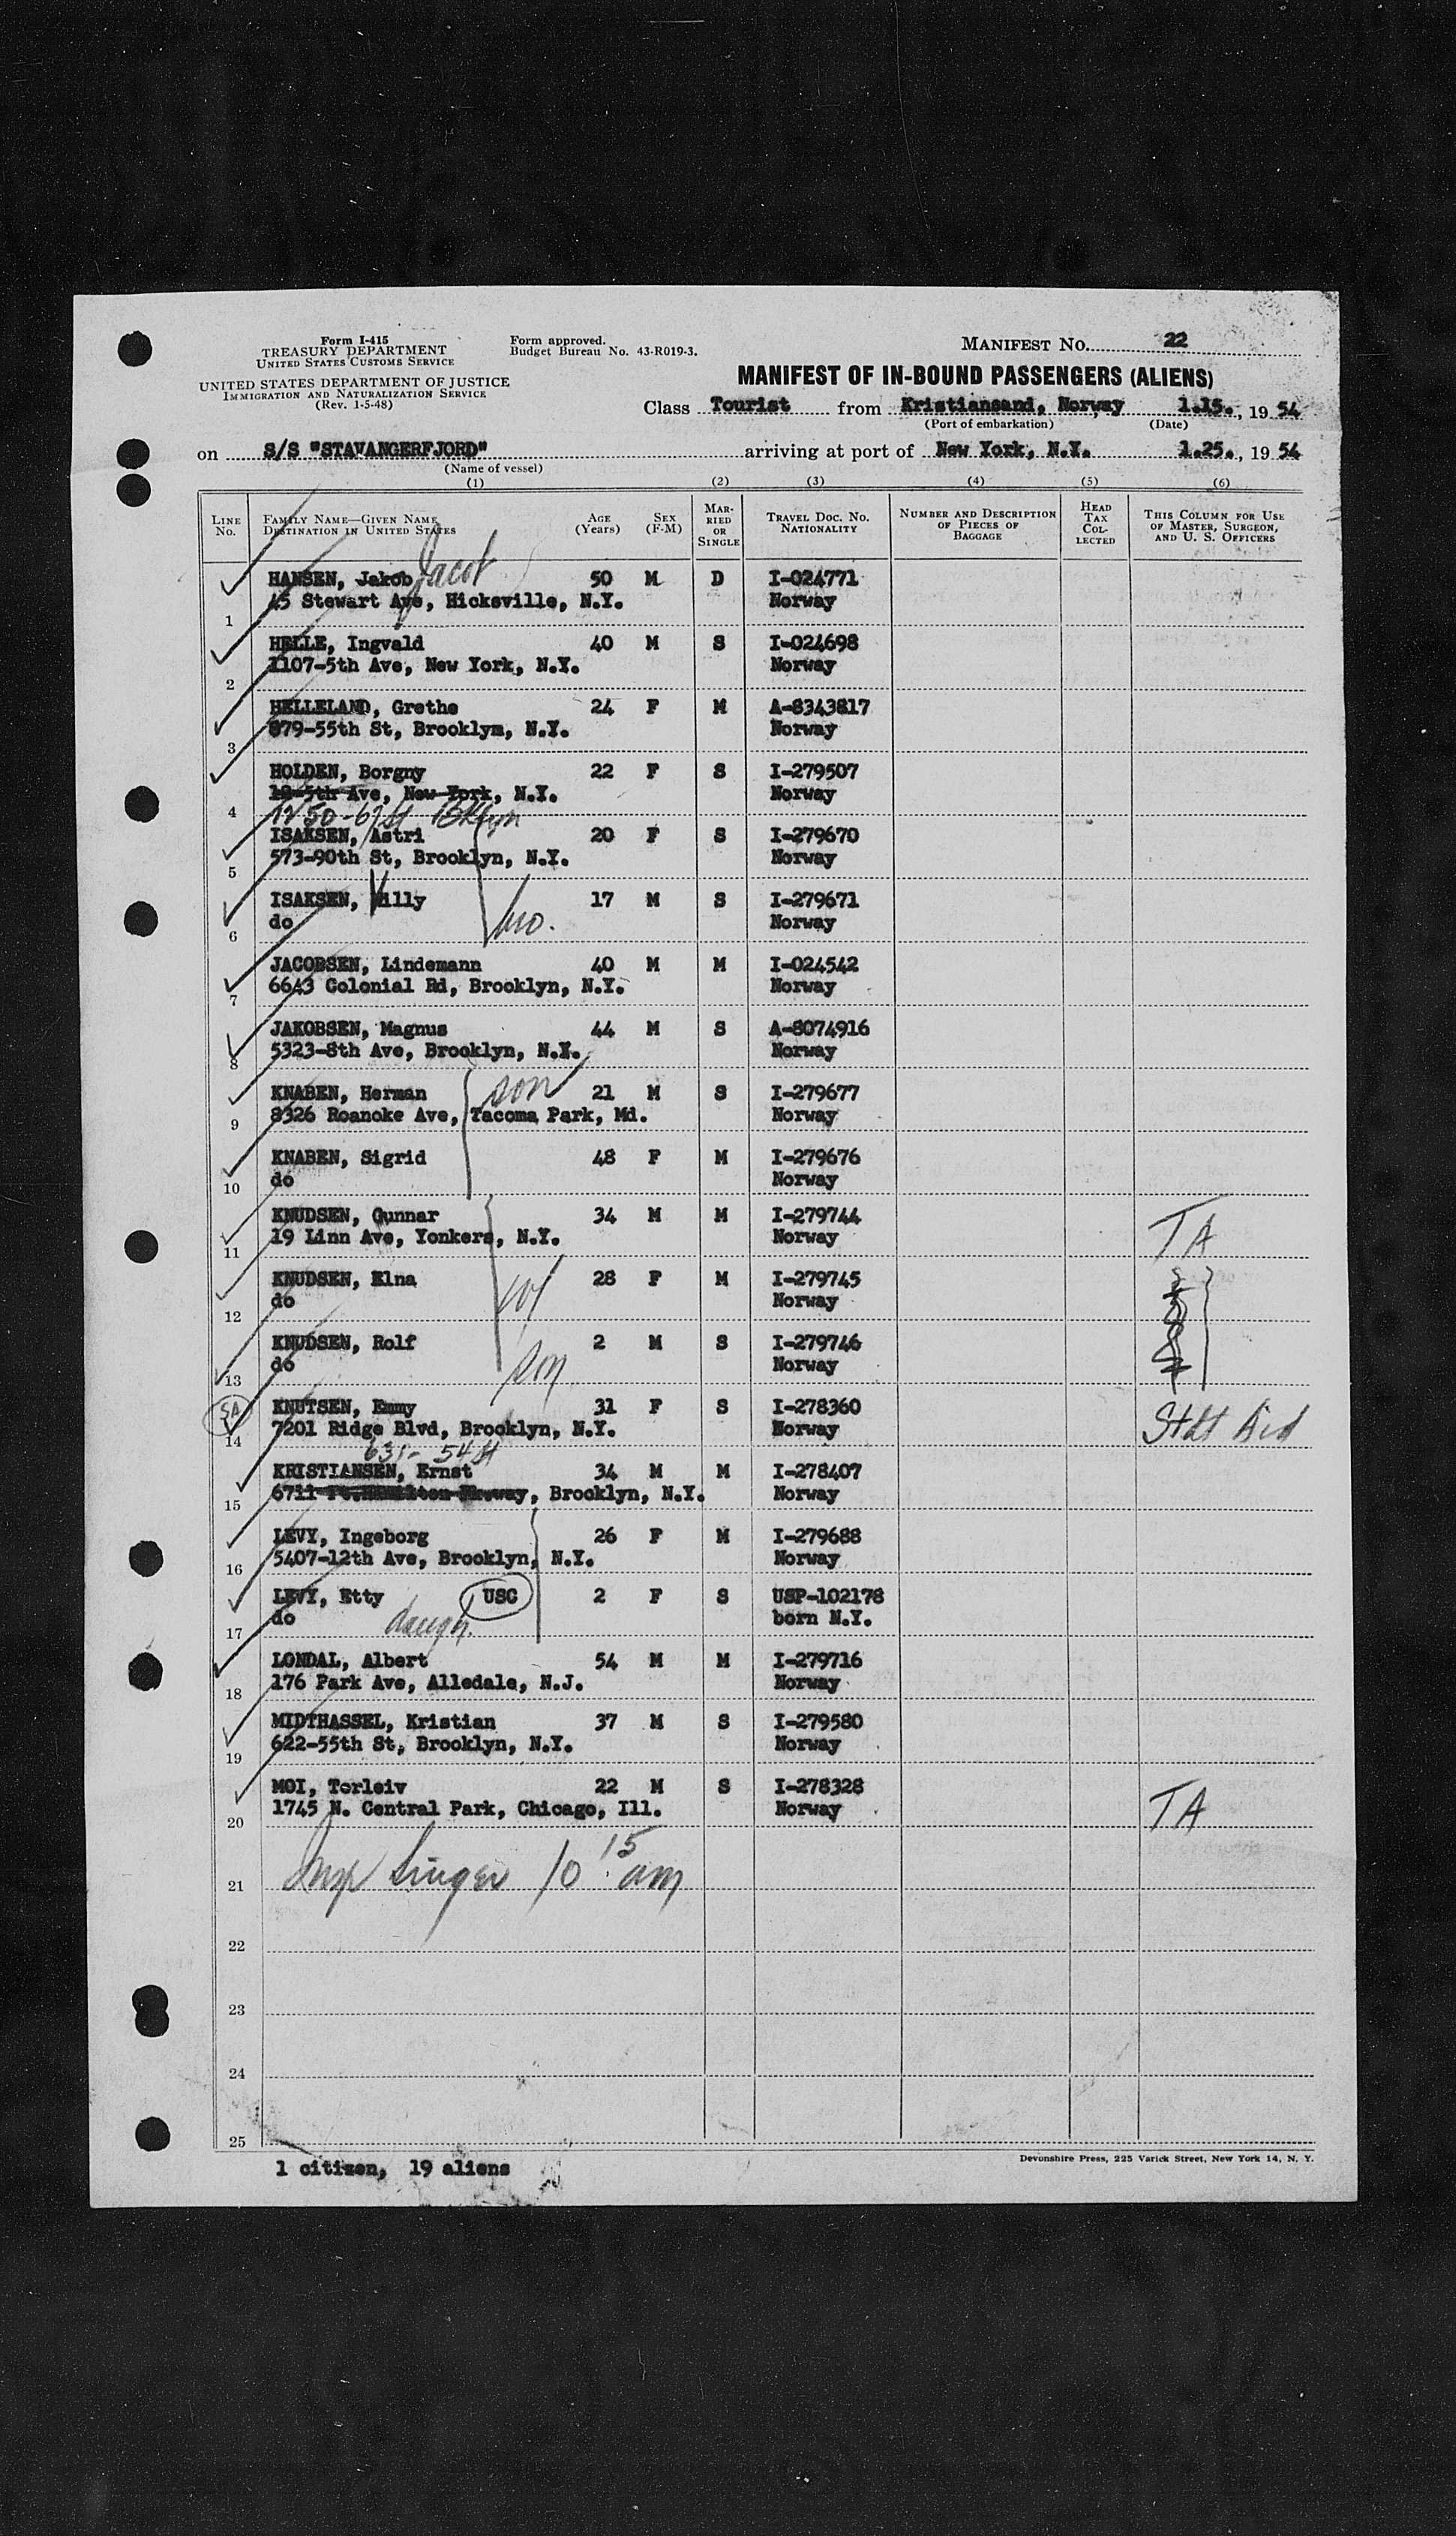 Form I-415
TREASURY DEPARTMENT
UNITED STATES CUSTOMS SERVICE
UNITED STATES DEPARTMENT OF JUSTICE
IMMIGRATION AND NATURALIZATION SERVICE
(Rev. 1-5-48)
Form approved.
Budget Bureau No. 43-R019-3.
MANIFEST NO. 22
MANIFEST OF IN-BOUND PASSENGERS (ALIENS)
Class Tourist from Kristiansand, Norway 1.15., 19 54
(Port of embarkation) (Date)
on S/S "STAVANGERFJORD" arriving at port of New York, N.Y. 1.25., 19 54
(Name of vessel)
(1) (2) (3) (4) (5) (6)
LINE NO. FAMILY NAME—GIVEN NAME DESTINATION IN UNITED STATES AGE (YEARS) SEX (F-M) MARRIED OR SINGLE TRAVEL DOC. NO. NATIONALITY NUMBER AND DESCRIPTION OF PIECES OF BAGGAGE HEAD TAX COLLECTED THIS COLUMN FOR USE OF MASTER, SURGEON, AND U. S. OFFICERS
HANSEN, Jakob Jacob 50 M D I-024771
1 45 Stewart Ave, Hicksville, N.Y. Norway
HELLE, Ingvald 40 M S I-024698
2 1107-5th Ave, New York, N.Y. Norway
HELLELAND, Grethe 24 F M A-8343817
3 879-55th St, Brooklym, N.Y. Norway
HOLDEN, Borgny 22 F S I-279507
4 18-5th Ave, New York, N.Y. Norway
1250-67 St Bklyn
ISAKSEN, Astri 20 F S I-279670
5 573-90th St, Brooklyn, N.Y. Norway
ISAKSEN, Villy 17 M S I-279671
6 do bro. Norway
JACOBSEN, Lindemann 40 M M I-024542
7 6643 Colonial Rd, Brooklyn, N.Y. Norway
JAKOBSEN, Magnus 44 M S A-8074916
8 5323-8th Ave, Brooklyn, N.Y. Norway
KNABEN, Herman son 21 M S I-279677
9 8326 Roanoke Ave, Tacoma Park, Md. Norway
KNABEN, Sigrid 48 F M I-279676
10 do Norway
KNUDSEN, Gunnar 34 M M I-279744
11 19 Linn Ave, Yonkers, N.Y. Norway TA
KNUDSEN, Elna 28 F M I-279745
12 do Norway
KNUDSEN, Rolf 2 M S I-279746
13 do son Norway
SA KNUTSEN, Emmy 31 F S I-278360
14 7201 Ridge Blvd, Brooklyn, N.Y. Norway
631-54 St
KRISTIANSEN, Ernst 34 M M I-278407
15 6711 Brooklyn, N.Y. Norway
LEVY, Ingeborg 26 F M I-279688
16 5407-12th Ave, Brooklyn, N.Y. Norway
LEVY, Etty USC 2 F S USP-102178
17 do daugh. born N.Y.
LONDAL, Albert 54 M M I-279716
18 176 Park Ave, Alledale, N.J. Norway
MIDTHASSEL, Kristian 37 M S I-279580
19 622-55th St, Brooklyn, N.Y. Norway
MOI, Torleiv 22 M S I-278328
20 1745 N. Central Park, Chicago, Ill. Norway TA
21 Insp Singer 10 15 am
22
23
24
25
1 citizen, 19 aliens
Devonshire Press, 225 Varick Street, New York 14, N. Y.